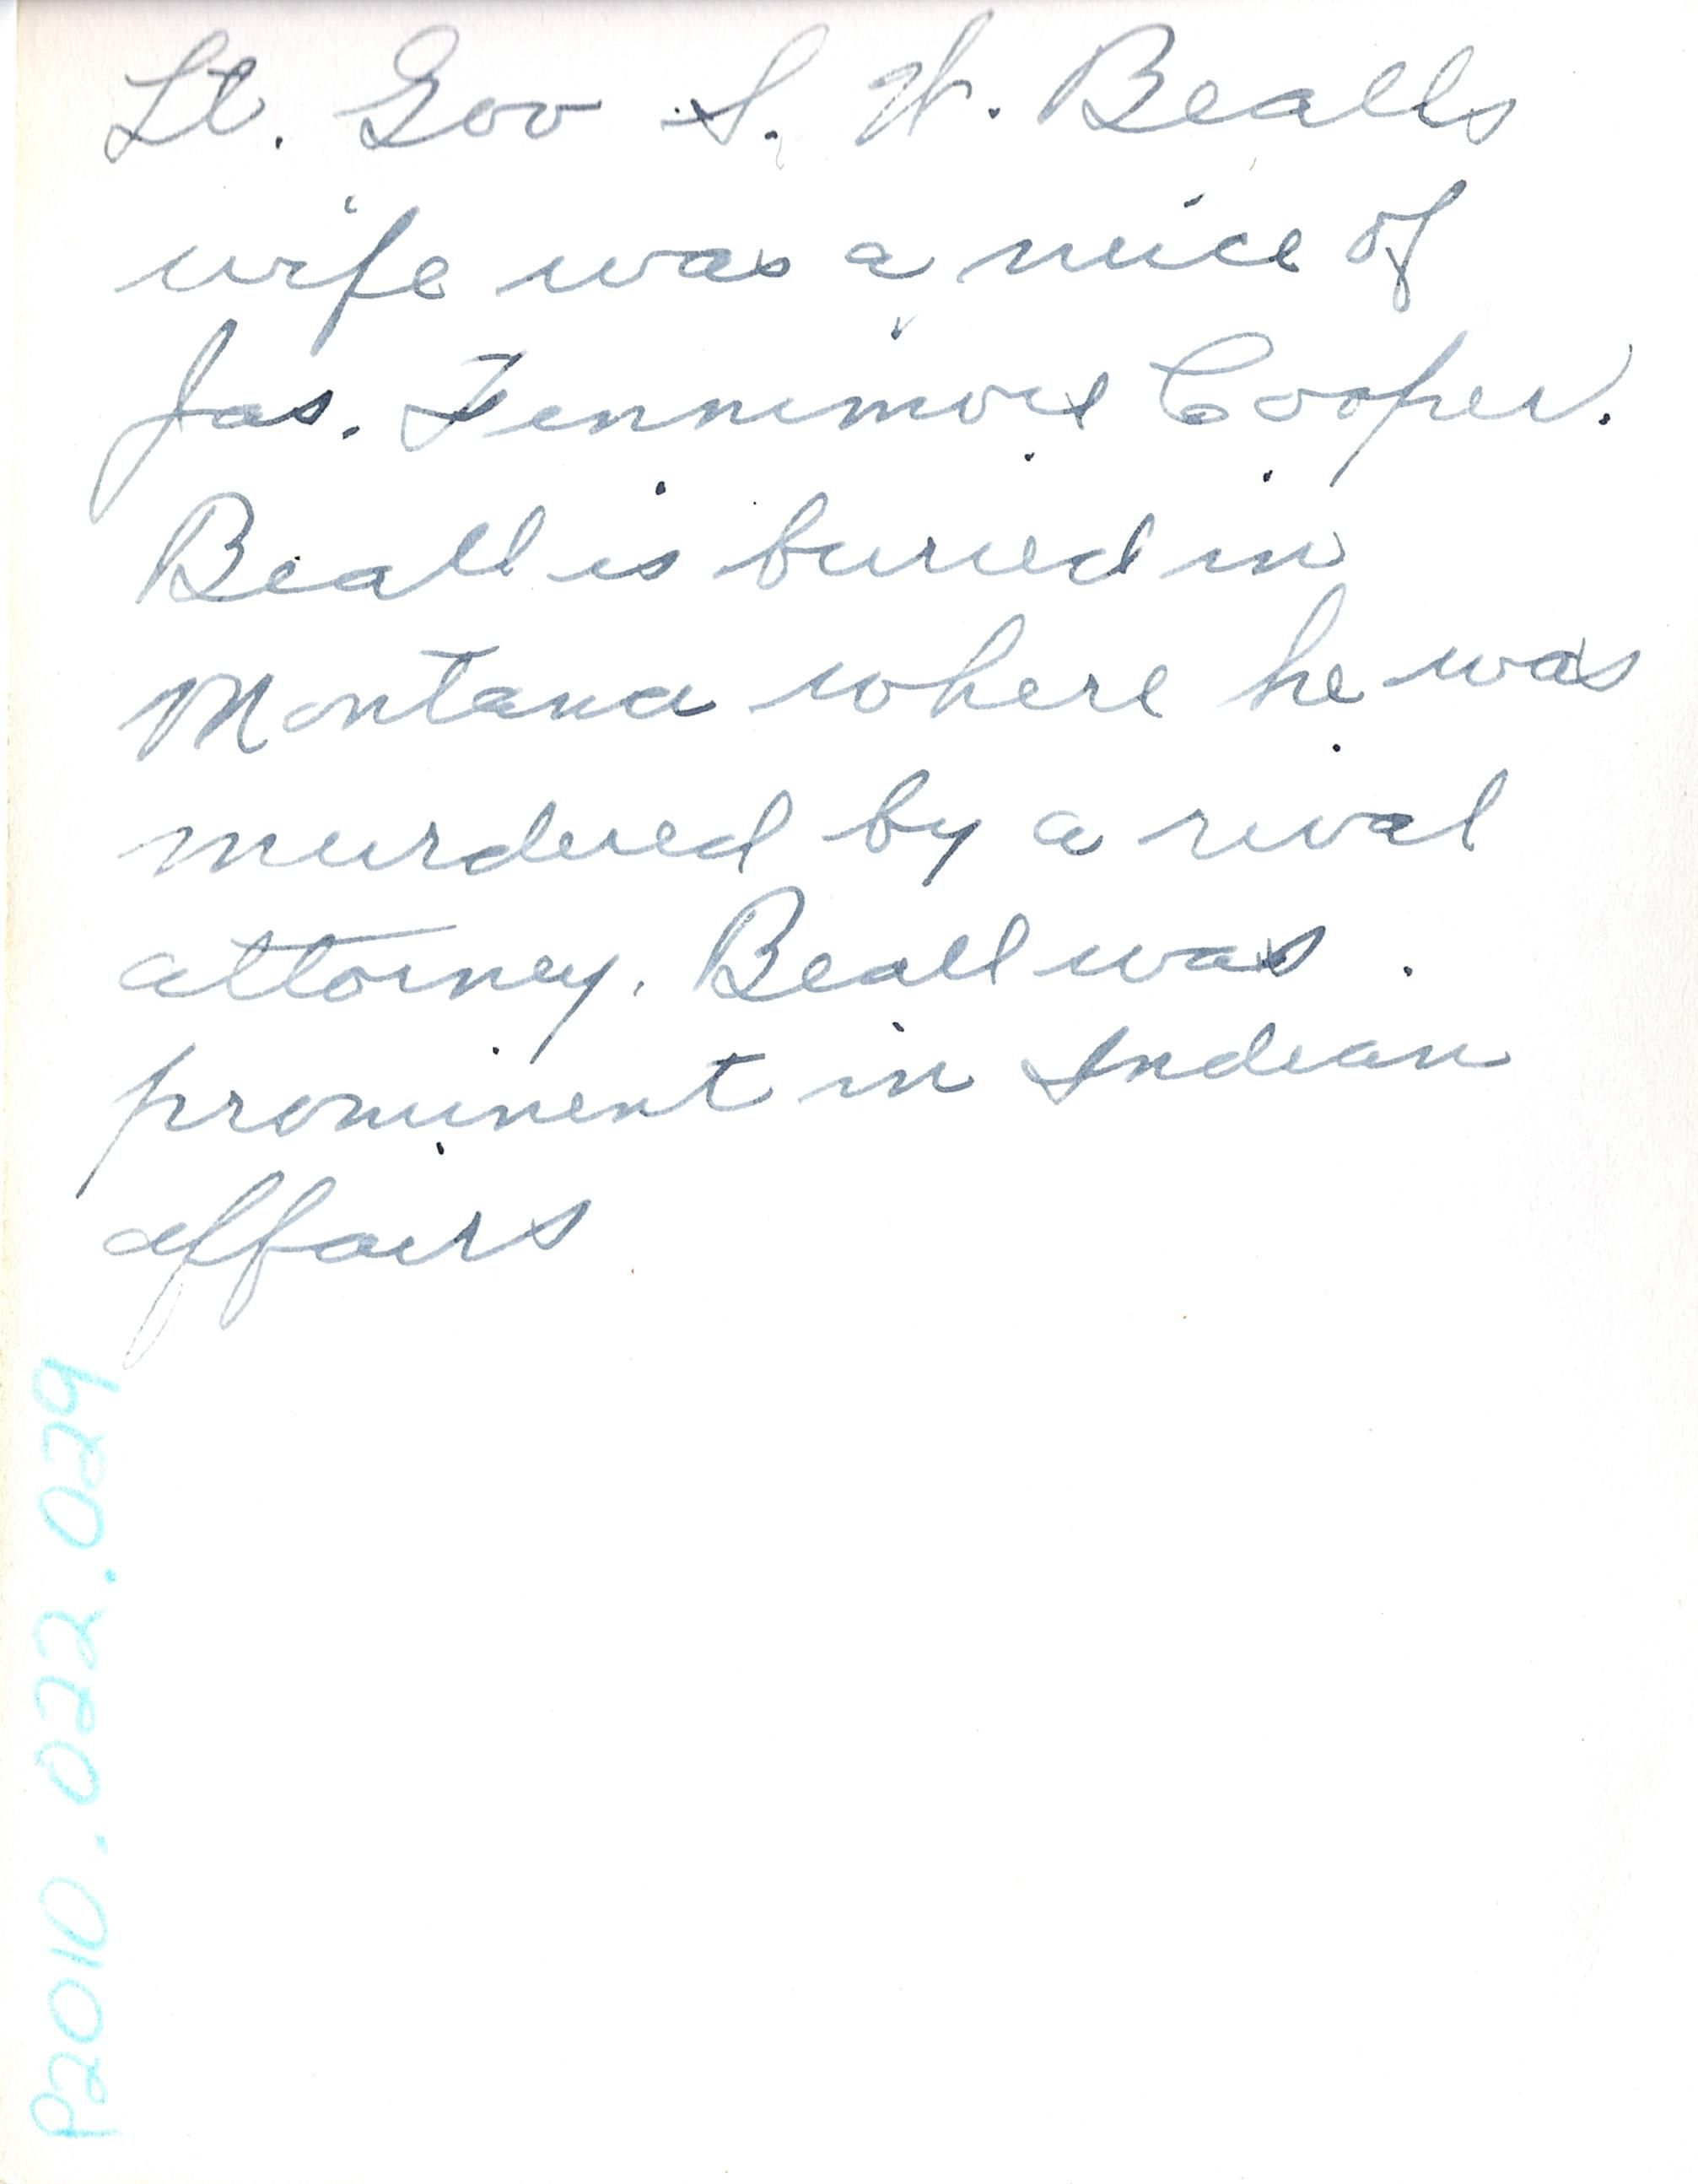 Lt. Gov S. W. Bealls
wife was a neice of
Jas. Fennimore Cooper.
Beall is buried in
Montana where he was
murdered by a rival
attorney. Beall was
prominent in Indian
affairs
P2010.022.029